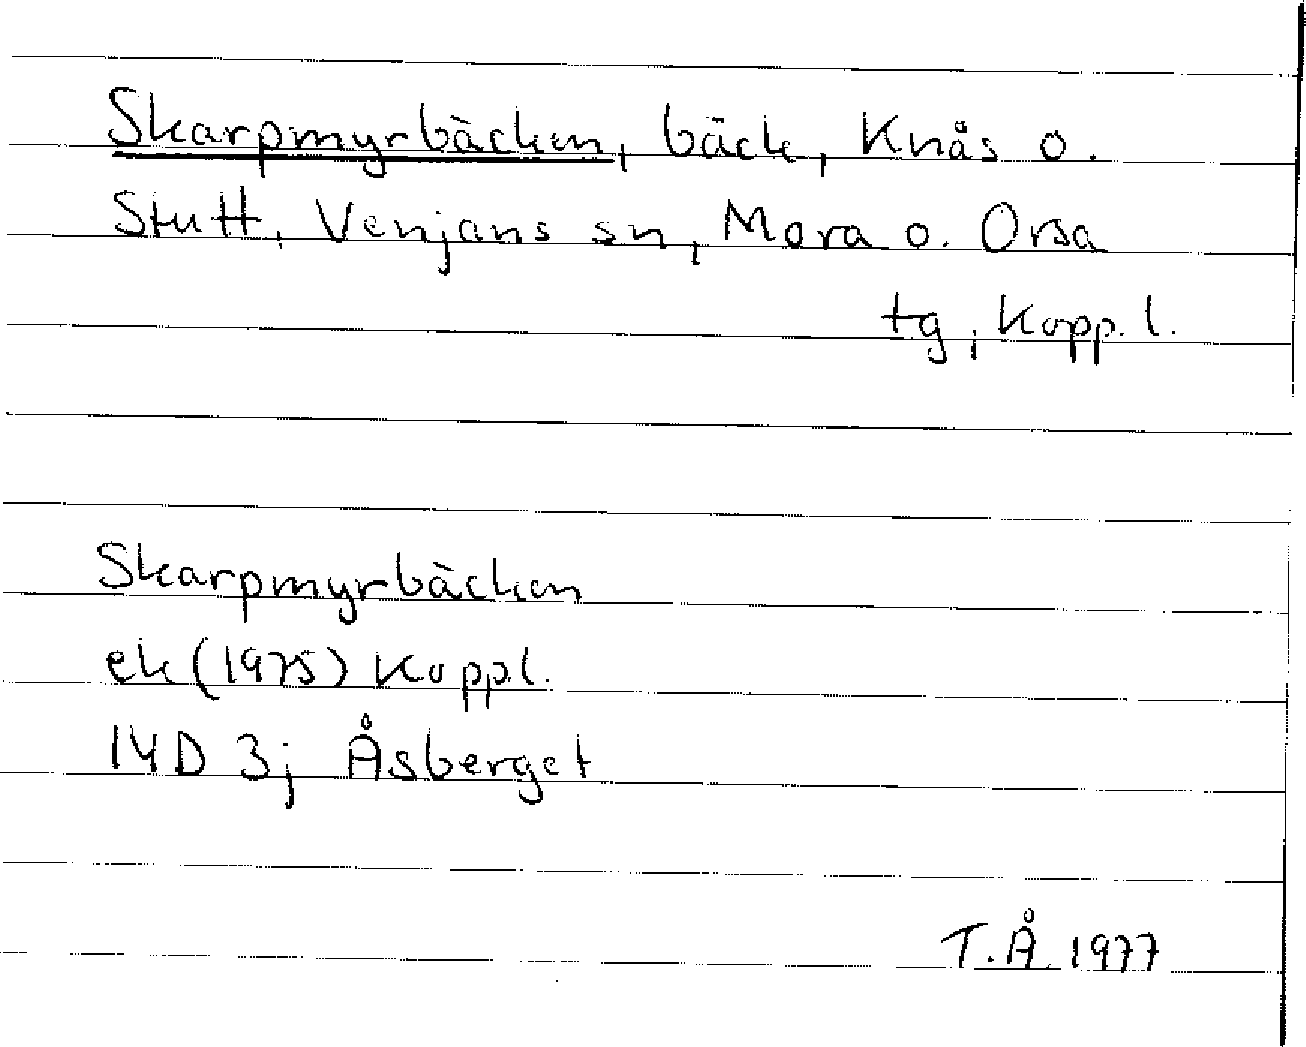 Skarpmyrbäcken, bäck, Knås o.
Stutt, Venjans sn, Mora o. Orsa
tg, Kopp. l.
Skarpmyrbäcken
ek (1975) Kopp.l.
14D 3j Åsberget
T.Å. 1977